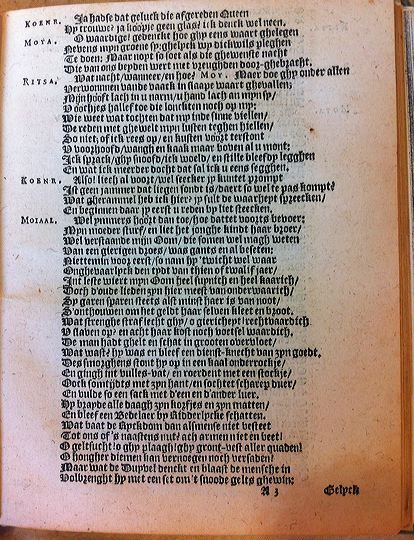 KOENR. Ja hadse dat geluck die afgereden Queen
Hy trouwe? ja koopje geen glas? ick denck wel neen.
MOYA. O waardige! gedenckt hoe ghy eens waart ghelegen
Nevens myn groene zy: ghelyck wy dickwils pleghen
Te doen: Maar nopt so soet als die ghewenste nacht
Die van ons beyden wert met vreughden door-ghebracht.
RITSA. Wat nacht/wanneer/en hoe? MOY. Maer doe ghy onder allen
Verwonnen vande vaack in slaape waart ghevallen:
Mijn hooft lach in u narm/u hand lach an myn zy/
V ooghjes half toe die lonckten noch op my:
Wie weet wat tochten dat my inde sinne vielen/
De reden met ghewelt mijn lusten teghen hielen/
So niet; of ick rees op/en kusten voort terstont
V voorhooft/wangh en kaak maar boven al u mont:
Ick sprack/ghy snoofd/ick woeld/en stille bleefdy legghen
En wat ick meerder docht dat sal ick u eens segghen.
KOENR. Also! liech al voort/wel seecker zy kuntet prompt
Ist geen jammer dat liegen sondt is/daert so wel te pas kompt?
Wat gherammel heb ick hier? zy sult de waarheyt spreecken/
En beginnen daar zy eerst u reden by liet steecken.
MOIAAL. Wel ymmers hoort dan toe/hoe dattet voorts bevoer;
Mijn moeder sturf/ en liet het jonghe kindt haar broer/
Wel verstaande mijn Oom/die somen wel magh weten
Van een gierigen droes/was gants en al beseten:
Niettemin voor eerst/so nam hy 'twicht wel waar
Onghevaarlyck den tydt van thien of twalif jaer/
Int leste wiert mijn Oom heel suynich en heel kaarich/
Doch d'oude lieden zyn hier meest van onderwaarich/
Sy garen sparen steets alst minst haer is van noot/
S'onthouwen om het geldt haar selven kleet en broot.
Wat strenghe straf lecht ghy/o giericheyt! rechtvaardich
V slaven op? en acht haar kost noch voetsel waardich.
De man hadt ghelt en schat in grooten overvloet/
Wat wast? hy was en bleef een dienst-knecht van zyn goedt,
Des smorghens stont hy op in een kaal onderrockje/
En gingh int vulles-vat/en roerdent met een stockje/
Oock somtijdts met zyn hant/en sochtet scharep duer/
En vulde so een sack met d'een en d'ander luer.
Hy brayde alle daagh zyn korfjes en zyn matten/
En bleef een Bedelaer by Ridderlycke schatten.
Wat baat de Ryckdom dan alsmense niet besteet
Tot ons of 's naastens nut? ach armen niet en beet!
O geltsucht! o ghy plaagh! ghy gront-vest aller quaden!
O hongher diemen kan vernoegen noch versaden?
Maar wat de Duyvel denckt en blaast de mensche in
Volbrenght hy met een set om 't snoode gelts ghewin:
A 3 Gelyck